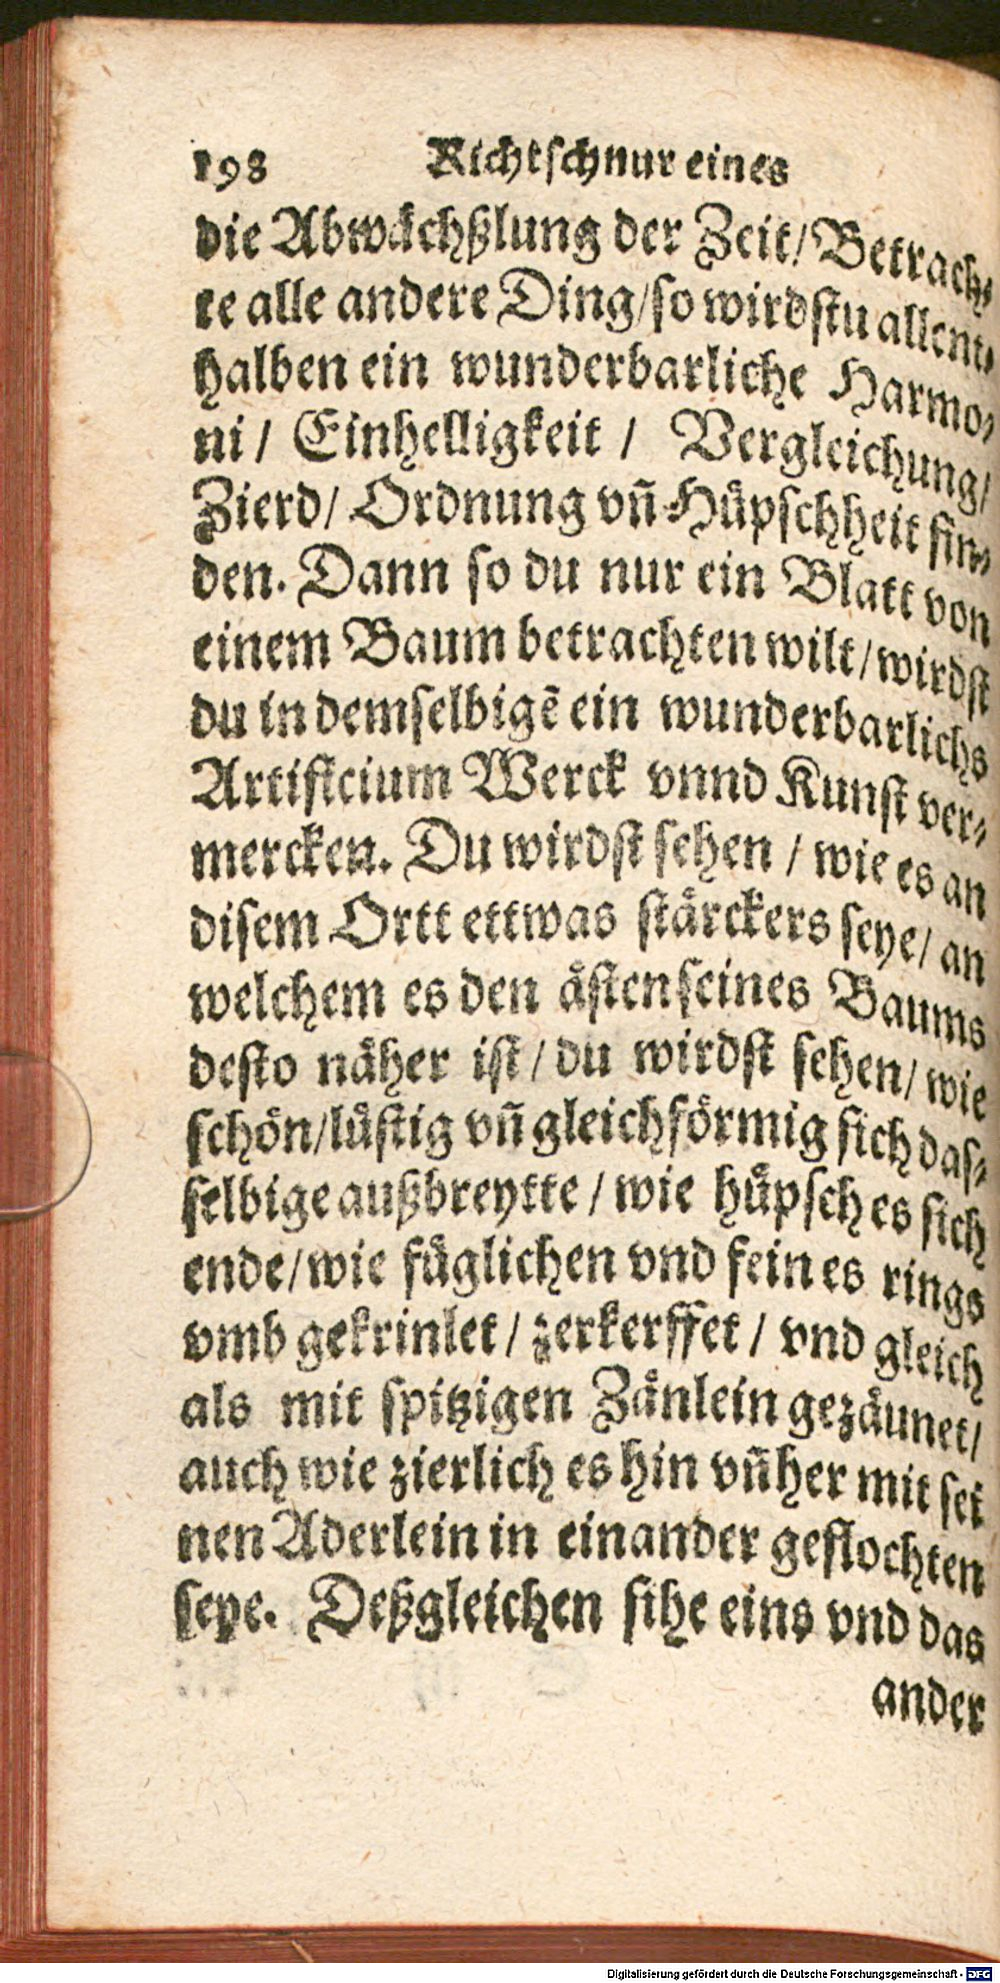 198 Richtschnur eines
die Abwächßlung der Zeit/ Betrach-
te alle andere Ding/ so wirdstu allent-
halben ein wunderbarliche Harmo-
ni / Einhelligkeit / Vergleichung/
Zierd/ Ordnung vñ Hüpschheit fin-
den. Dann so du nur ein Blatt von
einem Baum betrachten wilt/ wirdst
du in demselbigē ein wunderbarlichs
Artificium Werck vnnd Kunst ver-
mercken. Du wirdst sehen / wie es an
disem Ortt ettwas stärckers seye/ an
welchem es den ästen seines Baums
desto näher ist / du wirdst sehen/ wie
schön/ lüstig vñ gleichförmig sich das-
selbige außbreytte / wie hüpsch es sich
ende/ wie füglichen vnd fein es rings
vmb gekrinlet / zerkerffet / vnd gleich
als mit spitzigen Zänlein gezäunet/
auch wie zierlich es hin vñ her mit sei
nen Aderlein in einander geflochten
seye. Deßgleichen sihe eins vnd das
ander
Digitalisierung gefördert durch die Deutsche Forschungsgemeinschaft - DFG